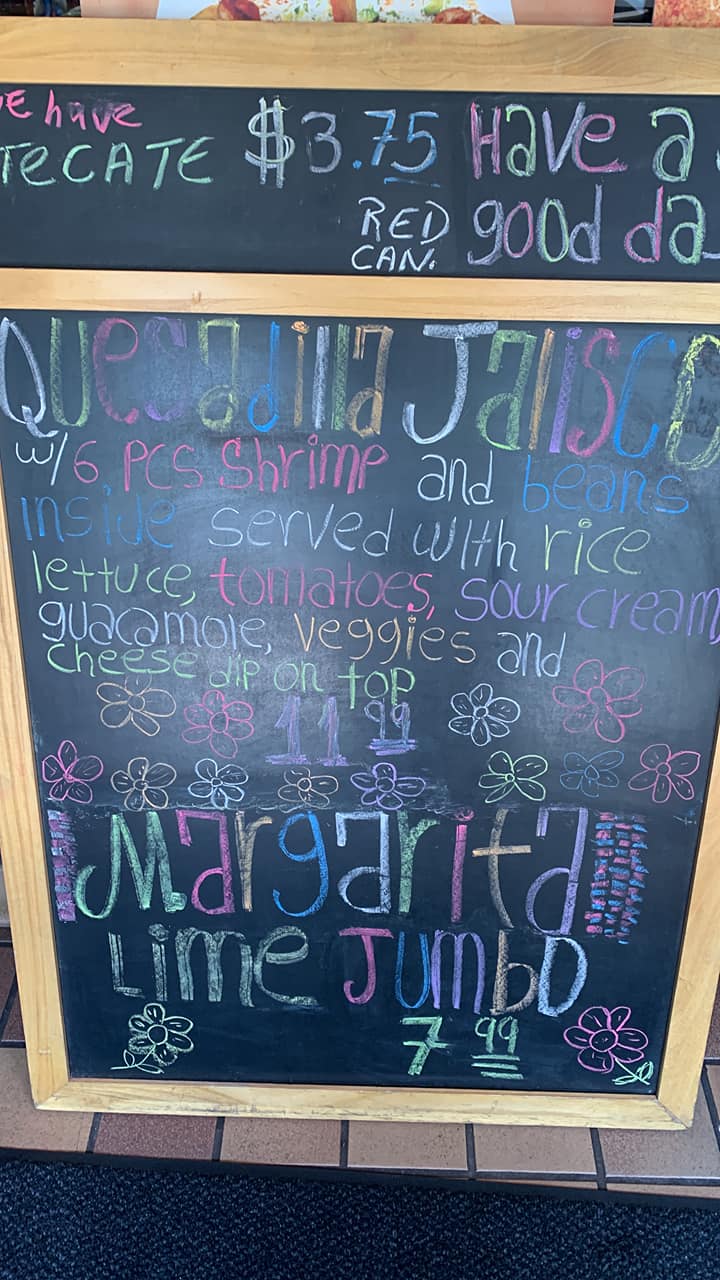 We have
TECATE $3.75
RED
CAN.
Have a
good da
Quesadilla Jalisco
w/6 pcs shrimp and beans
inside served with rice
lettuce, tomatoes, sour cream,
guacamole, veggies and
cheese dip on top
11 99
Margarita
Lime Jumbo
7 99